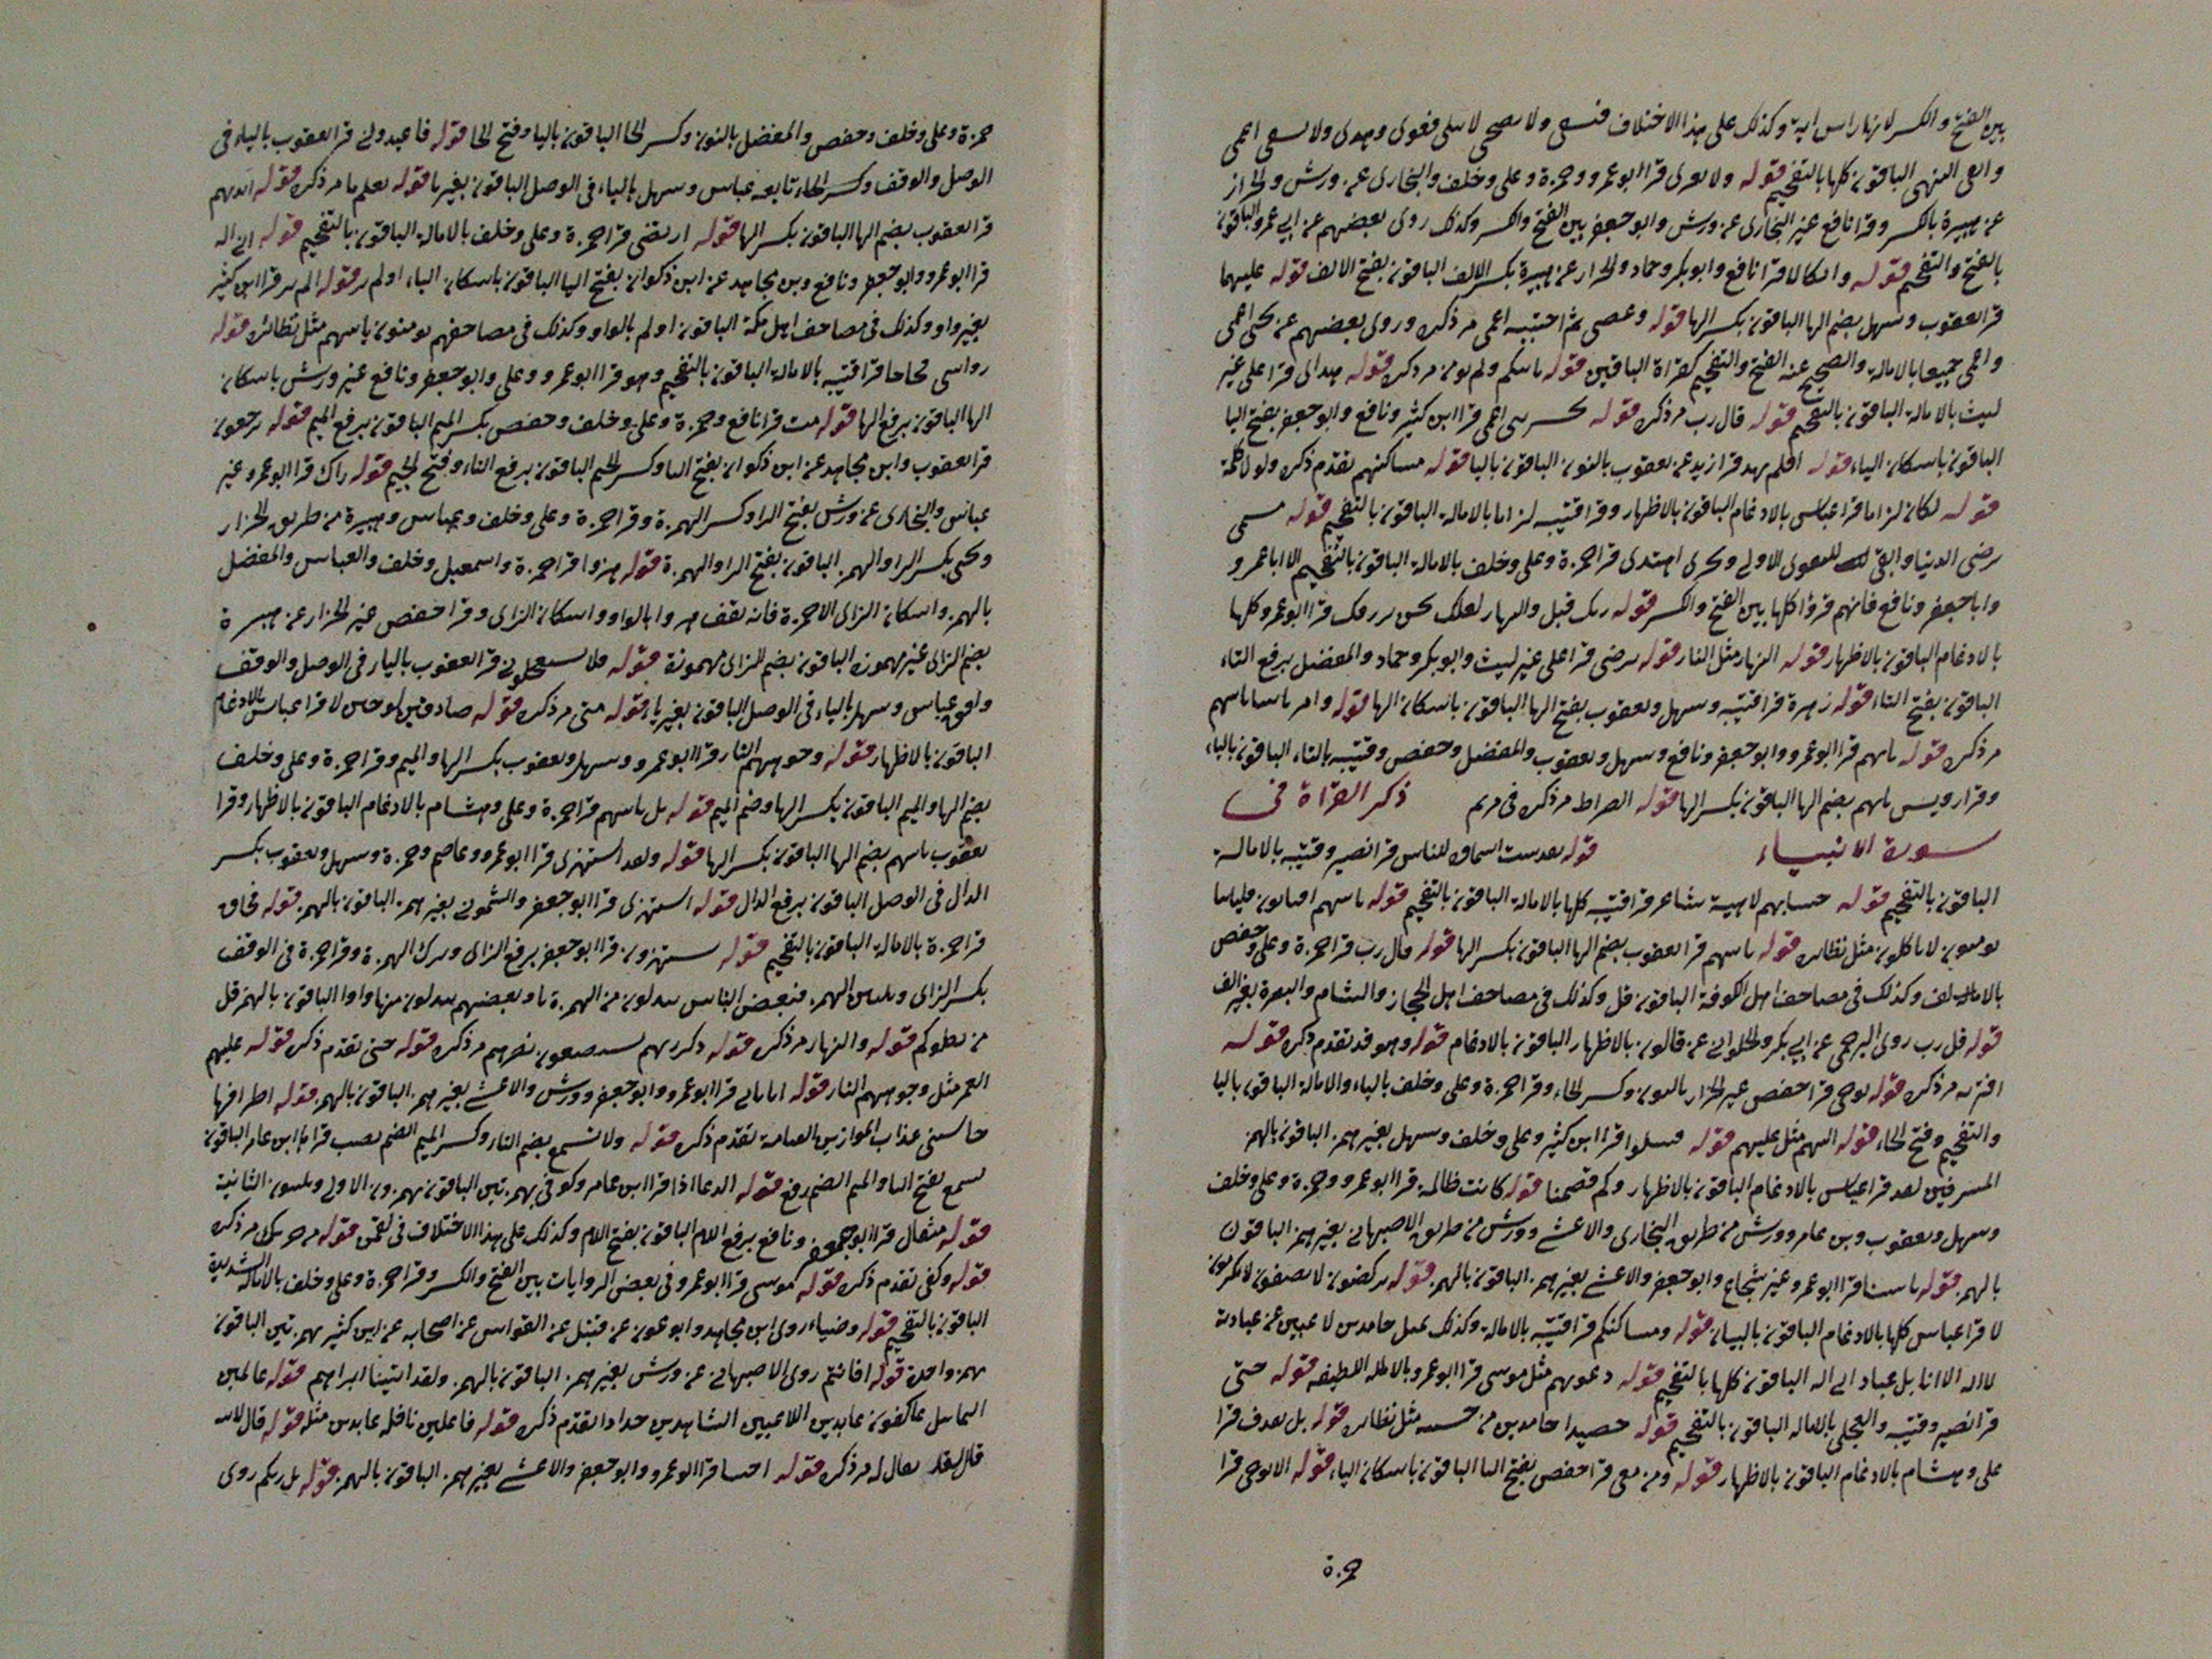 بين الفتح والكسر لانها راس اية وكذلك على هذا الاختلاف فنسى ولا تضحى لا يبلى فغوى وهدى ولا يشقى اعمى
وابقى النهى الباقون كلها بالتفخيم قوله ولا تعرى قرا ابو عمرو وحمزة وعلى وخلف والبخارى عن ورش والخزاز
عن هبيرة بالكسر وقرا نافع غير البخارى عن ورش وابو جعفر بين الفتح والكسر وكذلك روى بعضهم عن ابى عمرو الباقون
بالفتح والتفخيم قوله وانك لا قرا نافع وابو بكر وحماد والخزاز عن هبيرة بكسر الالف الباقون بفتح الالف قوله عليهما
قرا يعقوب وسهل بضم الها الباقون بكسر الها قوله وعصى ثم اجتبيه اعمى مر ذكره وروى بعضهم عن يحيى اعمى
واعمى جميعا بالامالة والصحيح عنه الفتح والتفخيم كقراة الباقين قوله ياتينكم ولم يومن مر ذكره قوله هداى قرا على غير
ليث بالامالة الباقون بالتفخيم قوله قال رب مر ذكره قوله حشرتنى اعمى قرا ابن كثير ونافع وابو جعفر بفتح اليا
الباقون باسكان الياء قوله افلم يهد قرا زيد عن يعقوب بالنون الباقون باليا قوله مساكنهم تقدم ذكره ولولا كلمة
قوله لكان لزاما قرا عباس بالادغام الباقون بالاظهار وقرا قتيبه لزاما بالامالة الباقون بالتفخيم قوله مسمى
ترضى الدنيا وابقى للتقوى الاولى ونخزى اهتدى قرا حمزة وعلى وخلف بالامالة الباقون بالتفخيم الا ابا عمرو
وابا جعفر ونافع فانهم قرؤا كلها بين الفتح والكسر قوله ربك قبل والنهار لعلك نحن نرزقك قرا ابو عمرو كلها
بالادغام الباقون بالاظهار قوله النهار مثل النار قوله ترضى قرا على غير ليث وابو بكر وحماد والمفضل برفع التاء
الباقون بفتح التاء قوله زهرة قرا قتيبه وسهل ويعقوب بفتح الها الباقون باسكان الها قوله وامر ياتينا ياتيهم
مر ذكره قوله تاتهم قرا ابو عمرو وابو جعفر ونافع وسهل ويعقوب والمفضل وحفص وقتيبه بالتاء الباقون بالياء
وقرا رويس تاتهم بضم الها الباقون بكسر الها قوله الصراط مر ذكره فى مريم ذكر القراة فى
سورة الانبياء قوله بعدست اسماق للناس قرا نصير وقتيبه بالامالة
الباقون بالتفخيم قوله حسابهم لاهية شاعر قرا قتيبه كلها بالامالة الباقون بالتفخيم قوله ياتيهم افتاتون فلياتنا
يومنون لا ياكلون مثل نظائره قوله ياتيهم قرا يعقوب بضم الها الباقون بكسر الها قوله قال رب قرا حمزة وعلى وحفص
بالالف وكذلك فى مصاحف اهل الكوفة الباقون قل وكذلك فى مصاحف اهل الحجاز والشام والبصرة بغير الف
قوله قل رب روى البرجمى عن ابى بكر والحلوانى عن قالون بالاظهار الباقون بالادغام قوله وهو قد تقدم ذكره قوله
افتريه مر ذكره قوله نوحى قرا حفص غير الخزاز بالنون وكسر الحاء وقرا حمزة وعلى وخلف بالياء والامالة الباقون باليا
والتفخيم وفتح الحاء قوله اليهم مثل عليهم قوله فسلوا قرا ابن كثير وعلى وخلف وسهل بغير همز الباقون بالهمز
المسرفين لقد قرا عباس بالادغام الباقون بالاظهار وكم قصمنا قوله كانت ظالمة قرا ابو عمرو وحمزة وعلى وخلف
وسهل ويعقوب وبن عامر وورش من طريق البخارى والاعشى وورش من طريق الاصبهانى بغير همز الباقون
بالهمز قوله باسنا قرا ابو عمرو غير شجاع وابو جعفر والاعشى بغير همز الباقون بالهمز قوله يركضون لا
لا قرا عباس كلها بالادغام الباقون بالبيان قوله ومساكنكم قرا قتيبه بالامالة وكذلك يعمل خامدين لاعبين عن عبادته
لا اله الا انا بل عباد الى اله الباقون كلها بالتفخيم قوله دعويهم مثل موسى قرا ابو عمرو بالامالة اللطيفه قوله حتى
قرا نصير وقتيبه والعجلى بالاماله الباقون بالتفخيم قوله حصيدا خامدين من خشيته مثل نظائره قوله بل نقذف قرا
على وهشام بالادغام الباقون بالاظهار قوله ومن معى قرا حفص بفتح اليا الباقون باسكان الياء قوله الا نوحى قرا
حمزة
حمزة وعلى وخلف وحفص والمفضل بالنون وكسر الحا الباقون باليا وفتح الحا قوله فاعبدونى قرا يعقوب بالياء فى
الوصل والوقف وكسر الحاء تابعه عباس وسهل بالياء فى الوصل الباقون بغير يا قوله يعلم ما مر ذكره قوله ايديهم
قرا يعقوب بضم الها الباقون بكسر الها قوله ارتضى قرا حمزة وعلى وخلف بالامالة الباقون بالتفخيم قوله انى اله
قرا ابو عمرو وابو جعفر ونافع وبن مجاهد عن ابن ذكوان بفتح اليا الباقون باسكان الياء اولم ير قوله الم ير قرا ابن كثير
بغير واو وكذلك فى مصاحف اهل مكة الباقون اولم بالواو وكذلك فى مصاحفهم يومنون ياتيهم مثل نظائره قوله
رواسى فجاجا قرا قتيبه بالامالة الباقون بالتفخيم وهو قرا ابو عمرو وعلى وابو جعفر ونافع غير ورش باسكان
الها الباقون برفع الها قوله مت قرا نافع وحمزة وعلى وخلف وحفص بكسر الميم الباقون برفع الميم قوله ترجعون
قرا يعقوب وابن مجاهد عن ابن ذكوان بفتح التا وكسر الجيم الباقون برفع التاء وفتح الجيم قوله راك قرا ابو عمرو غير
عباس والبخارى عن ورش بفتح الرا وكسر الهمزة وقرا حمزة وعلى وخلف وعباس وهبيرة من طريق الخزاز
ويحيى بكسر الرا والهمز الباقون بفتح الرا والهمزة قوله هزوا قرا حمزة واسمعيل وخلف والعباس والمفضل
بالهمز واسكان الزاى الا حمزة فانه يقف هزوا بالواو واسكان الزاى وقرا حفص غير الخزاز عن هبيرة
بضم الزاى غير مهموزه الباقون بضم الزاى مهموزة قوله فلا تستعجلونى قرا يعقوب باليا فى الوصل والوقف
وافق عباس وسهل بالياء فى الوصل الباقون بغير ياء قوله متى مر ذكره قوله صادقين لو حين لا قرا عباس بالادغام
الباقون بالاظهار قوله وجوههم النار قرا ابو عمرو وسهل ويعقوب بكسر الها والميم وقرا حمزة وعلى وخلف
بضم الها والميم الباقون بكسر الها وضم الميم قوله بل تاتيهم قرا حمزة وعلى وهشام بالادغام الباقون بالاظهار وقرا
يعقوب تاتيهم بضم الها الباقون بكسر الها قوله ولقد استهزى قرا ابو عمرو وعاصم وحمزة وسهل ويعقوب بكسر
الدال فى الوصل الباقون برفع الدال قوله استهزى قرا ابو جعفر والشمونى بغير همز الباقون بالهمز قوله فحاق
قرا حمزة بالامالة الباقون بالتفخيم قوله يستهزون قرا ابو جعفر برفع الزاى وترك الهمزة وقرا حمزة فى الوقف
بكسر الزاى وتليين الهمز فبعض الناس يبدلون من الهمزة يا وبعضهم يبدلون منها واوا الباقون بالهمز قل
من يكلوكم قوله والنهار مر ذكره قوله ذكر ربهم يستطيعون نصرهم مر ذكره قوله حتى تقدم ذكره قوله عليهم
العمر مثل وجوههم النار قوله قرا ابو عمرو وابو جعفر وورش والاعشى بغير همز الباقون بالهمز قوله اطرافها
حاسبين عذاب الموازين القيامة تقدم ذكره قوله ولا تسمع بضم التاء وكسر الميم الصم نصب قراها ابن عامر الباقون
يسمع بفتح اليا والميم الصم رفع قوله الدعا اذا قرا ابن عامر وكوفى بهمزتين الباقون بهمزون الاولى ويلينون الثانية
قوله مثقال قرا ابو جعفر ونافع برفع اللام الباقون بفتح اللام وكذلك على هذا الاختلاف فى لقمن قوله من خردل مر ذكره
قوله وكفى تقدم ذكره قوله موسى قرا ابو عمرو فى بعض الروايات بين الفتح والكسر وقرا حمزة وعلى وخلف بالامالة الشديدة
الباقون بالتفخيم قوله وضياء روى ابن مجاهد وابو عون عن قنبل عن القواس عن اصحابه عن ابن كثير بهمزتين الباقون
بهمز واحدة قوله افانتم روى الاصبهانى عن ورش بغير همز الباقون بالهمز ولقد اتينا ابراهيم قوله عالمين
التماثيل عاكفون عابدين اللاعبين الشاهدين جذاذا تقدم ذكره قوله فاعلين نافلة عابدين مثله قوله قال لابيه
قال لقد يقال له مر ذكره قوله اجئتنا قرا ابو عمرو وابو جعفر والاعشى بغير همز الباقون بالهمز قوله بل ربكم روى